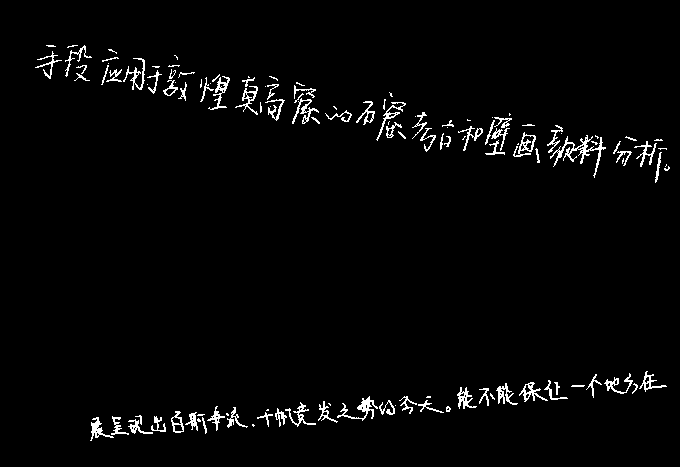 手段应用于敦煌莫高窟的石窟考古和壁画颜料分析。
展呈现出百舸争流、千帆竞发之势的今天。能不能保让一个地方在